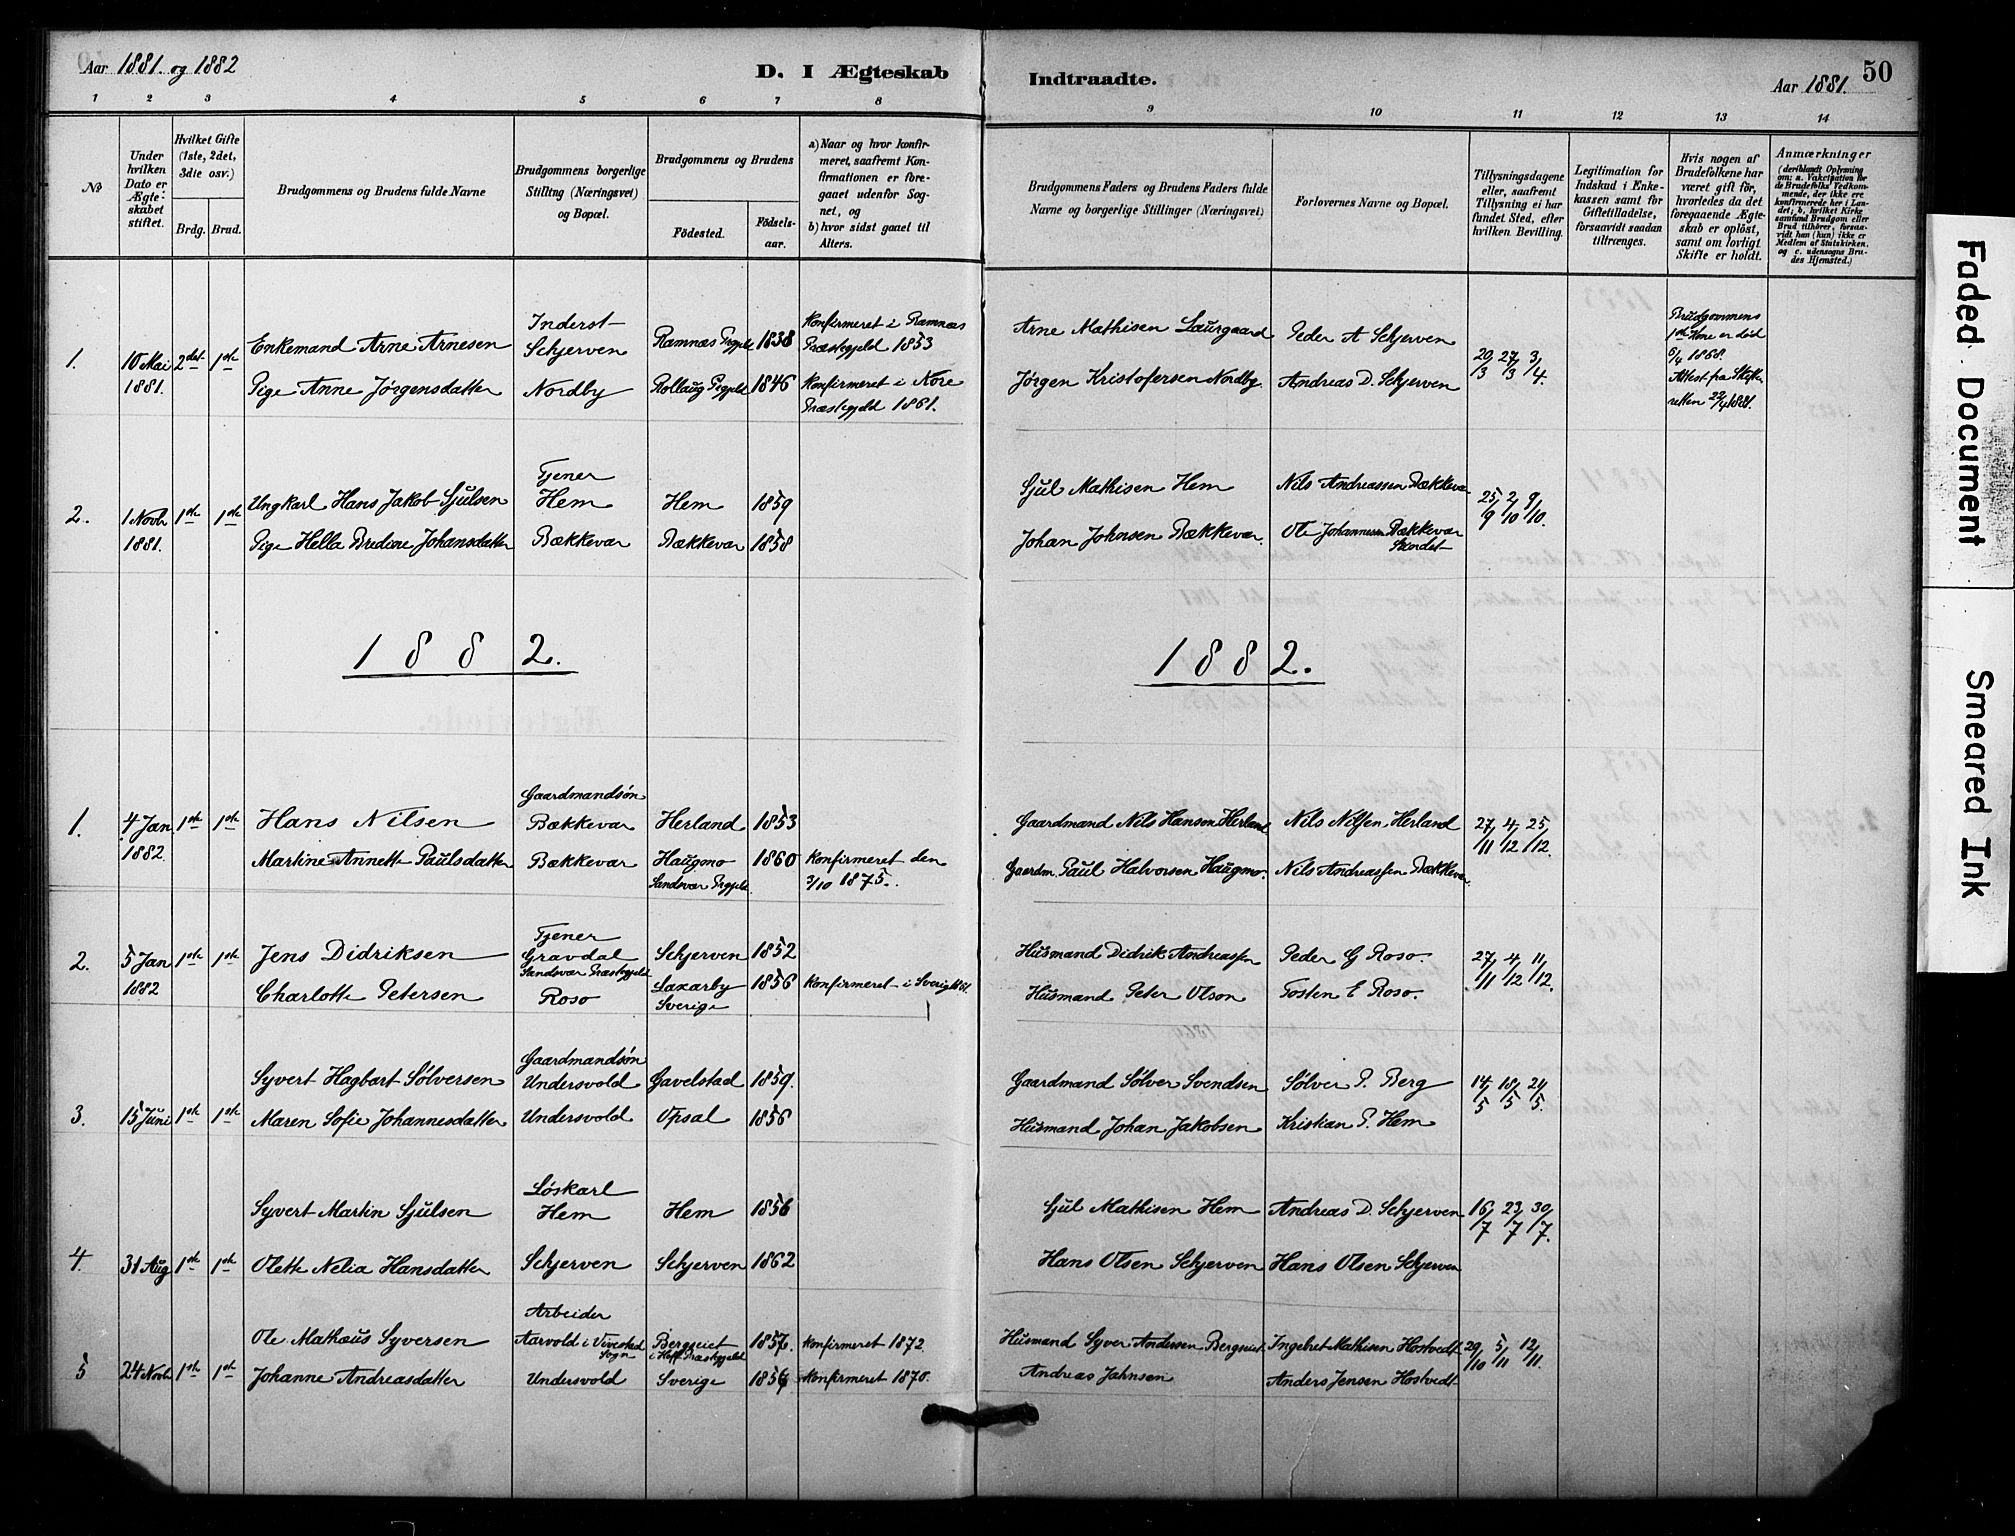 Aar 1881. og 1882
D. I Ægteskab
Indtraadte.
Aar 1881.
50
1 2 3 4 5 6 7 8
9 10 11 12 13 14
No
Under hvilken Dato er Ægteskabet stiftet.
Hvilket Gifte (1ste, 2det, 3die osv.)
Brdg. Brud.
Brudgommens og Brudens fulde Navne
Brudgommens borgerlige Stilling (Næringsvei) og Bopæl.
Brudgommens og Brudens
Födested.
Födsels-aar.
a) Naar og hvor konfirmeret, saafremt Konfirmationen er foregaaet udenfor Sognet, og
b) hvor sidst gaaet til Alters.
Brudgommens Faders og Brudens Faders fulde Navne og borgerlige Stillinger (Næringsvei)
Forlovernes Navne og Bopæl.
Tillysningsdagene eller, saafremt Tillysning ei har fundet Sted, efter hvilken Bevilling.
Legitimation for Indskud i Enkekassen samt for Giftetilladelse, forsaavidt saadan tiltrænges.
Hvis nogen af Brudefolkene har været gift för, hvorledes da det foregaaende Ægteskab er oplöst, samt om lovligt Skifte er holdt.
Anmærkninger
(deriblandt Oplysning om: a. Vakcination for de Brudefolks Vedkommende, der ikke ere konfirmerede her i Landet; b. hvilket Kirkesamfund Brudgom eller Brud tilhører, forsaavidt han (hun) ikke er Medlem af Statskirken, og c. udensogns Brudes Hjemsted.)
1. 10 Mai 1881. 2det 1ste
Enkemand Arne Arnesen Inderst Schjerven Ramnæs Prgjeld 1838 Konfirmeret i Ramnæs Præstegjeld 1853
Arne Mathisen Laurgaard Peder A Schjerven 20/3 27/3 3/4.
Brudgommens 1ste Kone er död 6/4 1868. Attest fra Skifteretten 22/4 1881.
Pige Anne Jörgensdatter Nordby Rollaug Prgjeld 1846 Konfirmeret i Nore Præstegjeld 1861.
Jörgen Kristofersen Nordby. Andreas D. Schjerven
2. 1 Novbr 1881. 1ste 1ste
Ungkarl Hans Jakob Sjulsen Tjener Hem Hem 1859
Sjul Mathisen Hem Nils Andreassen Bækkevar 25/9 2/10 9/10.
Pige Hella Bredine Johansdatter Bækkevar Bækkevar 1858
Johan Johnsen Bækkevar. Ole Johannesen Bækkevar
1882. 1882.
1. 4 Jan. 1882. 1ste 1ste
Hans Nilsen Gaardmandsön Bækkevar Herland 1853
Gaardmand Nils Hansen Herland Nils Nilsen, Herland 27/11 4/12 25/12.
Martine Annette Paulsdatter Bækkevar Haugmo Sandsvær Prgjeld 1860 Konfirmeret den 3/10 1875.
Gaardm. Paul Halvorsen Haugmo. Nils Andreassen Bækkevar
2. 5 Jan 1882 1ste 1ste
Jens Didriksen Tjener Gravdal Sandsvær Præstegjeld Schjerven 1852
Husmand Didrik Andreassen Peder G Roso. 27/11 4/12 11/12.
Charlotte Petersen Roso Laxarby Sverige 1856 Konfirmeret i Sverig
Husmand Peter Olson Tosten E Roso.
3. 15 Juni 1ste 1ste
Syvert Hagbart Sölversen Gaardmandsön Undersvold Gavelstad 1859.
Gaardmand Sölver Svendsen Sölver P. Berg 14/5 18/5 21/5.
Maren Sofie Johannesdatter Undersvold Opsal 1856
Husmand Johan Jakobsen Kristian P. Hem
4. 31 Aug 1ste 1ste
Syvert Martin Sjulsen Löskarl Hem Hem 1856
Sjul Mathisen Hem Andreas D. Schjerven 16/7 23/7 30/7.
Olette Nelia Hansdatter Schjerven Schjerven 1862
Hans Olsen Schjerven Hans Olsen Schjerven
5 24 Novbr 1ste 1ste
Ole Mathæus Syversen Arbeider Aarvold i Vivestad Sogn Bergseiet i Hoff Præstegjeld 1857. Konfirmeret 1872.
Husmand Syver Andersen Bergseiet Ingebret Mathisen Hostvedt 29/10 5/11 12/11.
Johanne Andreasdatter Undersvold Sverige Konfirmeret 1870.
Andreas Jahnsen Anders Jensen Hostvedt
Faded Document
Smeared Ink